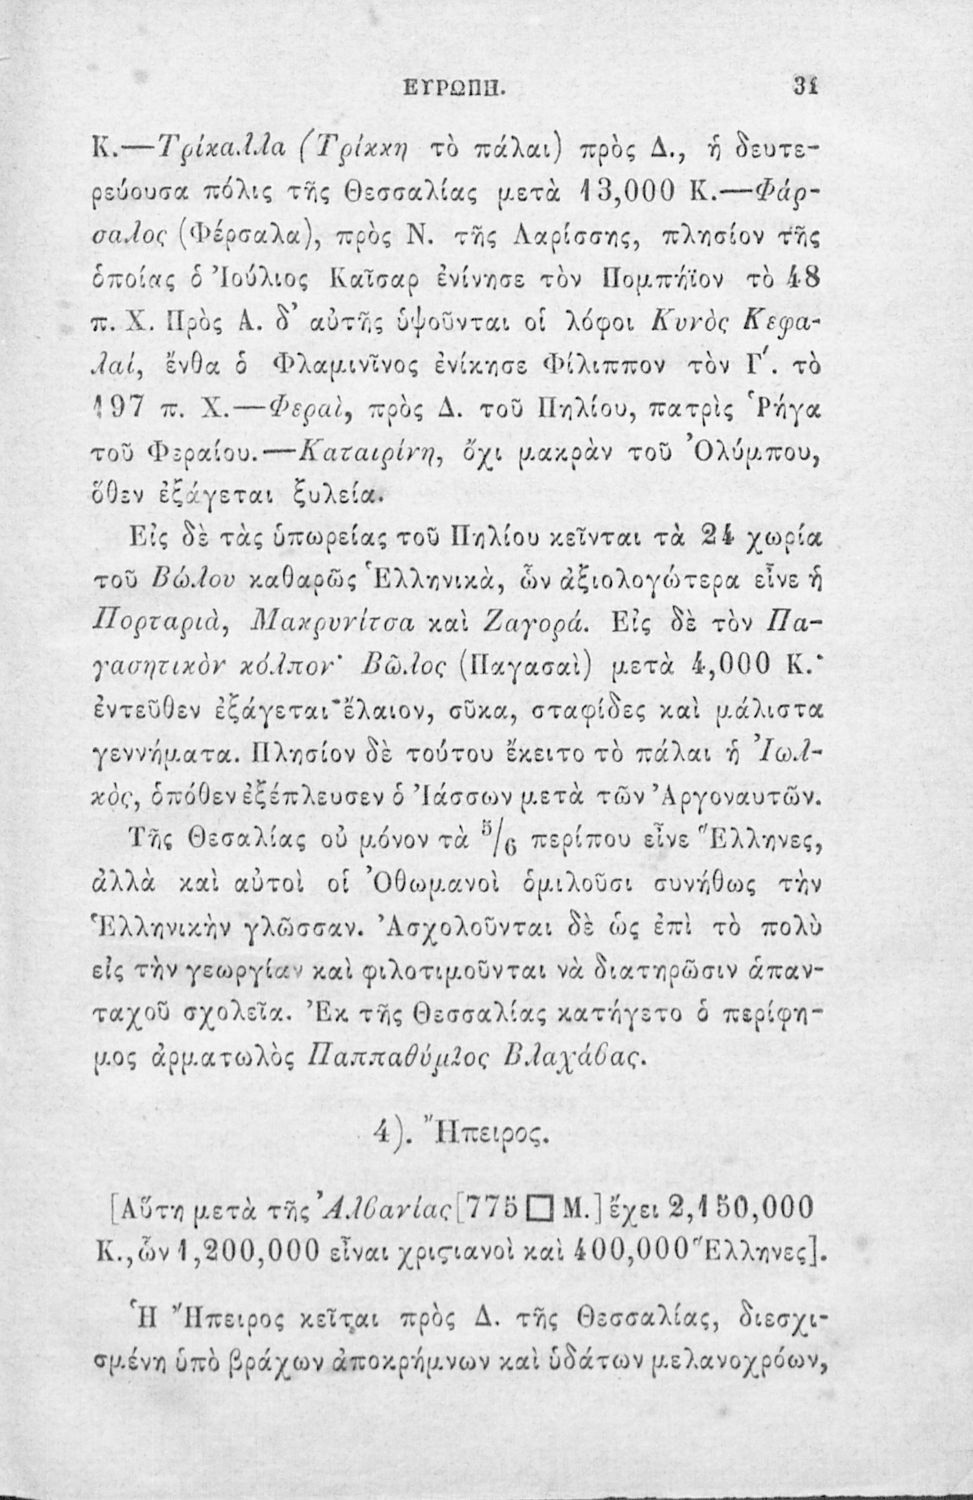 ΕΥΡΩΠΗ. 31
Κ.—Τρίκαλλα (Τρίκκη τὸ πάλαι) πρὸς Δ., ἡ δευτε-
ρεύουσα πόλις τῆς Θεσσαλίας μετὰ 13,000 Κ.—Φάρ-
σαλος (Φέρσαλα), πρὸς Ν. τῆς Λαρίσσης, πλησίον τῆς
ὁποίας ὁ Ἰούλιος Καῖσαρ ἐνίνησε τὸν Πομπήϊον τὸ 48
π. Χ. Πρὸς Α. δ’ αὐτῆς ὑψοῦνται οἱ λόφοι Κυνὸς Κεφα-
λαί, ἔνθα ὁ Φλαμινῖνος ἐνίκησε Φίλιππον τὸν Γ΄. τὸ
197 π. Χ.—Φεραὶ, πρὸς Δ. τοῦ Πηλίου, πατρὶς Ῥήγα
τοῦ Φεραίου.—Καταιρίνη, ὄχι μακρὰν τοῦ Ὀλύμπου,
ὅθεν ἐξάγεται ξυλεία.
Εἰς δὲ τὰς ὑπωρείας τοῦ Πηλίου κεῖνται τὰ 24 χωρία
τοῦ Βώλου καθαρῶς Ἑλληνικὰ, ὧν ἀξιολογώτερα εἶνε ἡ
Πορταριὰ, Μακρυνίτσα καὶ Ζαγορά. Εἰς δὲ τὸν Πα-
γασητικὸν κόλπον· Βῶλος (Παγασαὶ) μετὰ 4,000 Κ.·
ἐντεῦθεν ἐξάγεται ἔλαιον, σῦκα, σταφίδες καὶ μάλιστα
γεννήματα. Πλησίον δὲ τούτου ἔκειτο τὸ πάλαι ἡ Ἰωλ-
κὸς, ὁπόθεν ἐξέπλευσεν ὁ Ἰάσσων μετὰ τῶν Ἀργοναυτῶν.
Τῆς Θεσαλίας οὐ μόνον τὰ 5/6 περίπου εἶνε Ἕλληνες,
ἀλλὰ καὶ αὐτοὶ οἱ Ὀθωμανοὶ ὁμιλοῦσι συνήθως τὴν
Ἑλληνικὴν γλῶσσαν. Ἀσχολοῦνται δὲ ὡς ἐπὶ τὸ πολὺ
εἰς τὴν γεωργίαν καὶ φιλοτιμοῦνται νὰ διατηρῶσιν ἁπαν-
ταχοῦ σχολεῖα. Ἐκ τῆς Θεσσαλίας κατήγετο ὁ περίφη-
μος ἁρματωλὸς Παππαθύμιος Βλαχάβας.
4). Ἤπειρος.
[Αὕτη μετὰ τῆς Ἀλβανίας [775 □ Μ.] ἔχει 2,150,000
Κ., ὧν 1,200,000 εἶναι χριςιανοὶ καὶ 400,000 Ἕλληνες].
Ἡ Ἤπειρος κεῖται πρὸς Δ. τῆς Θεσσαλίας, διεσχι-
σμένη ὑπὸ βράχων ἀποκρήμνων καὶ ὑδάτων μελανοχρόων,